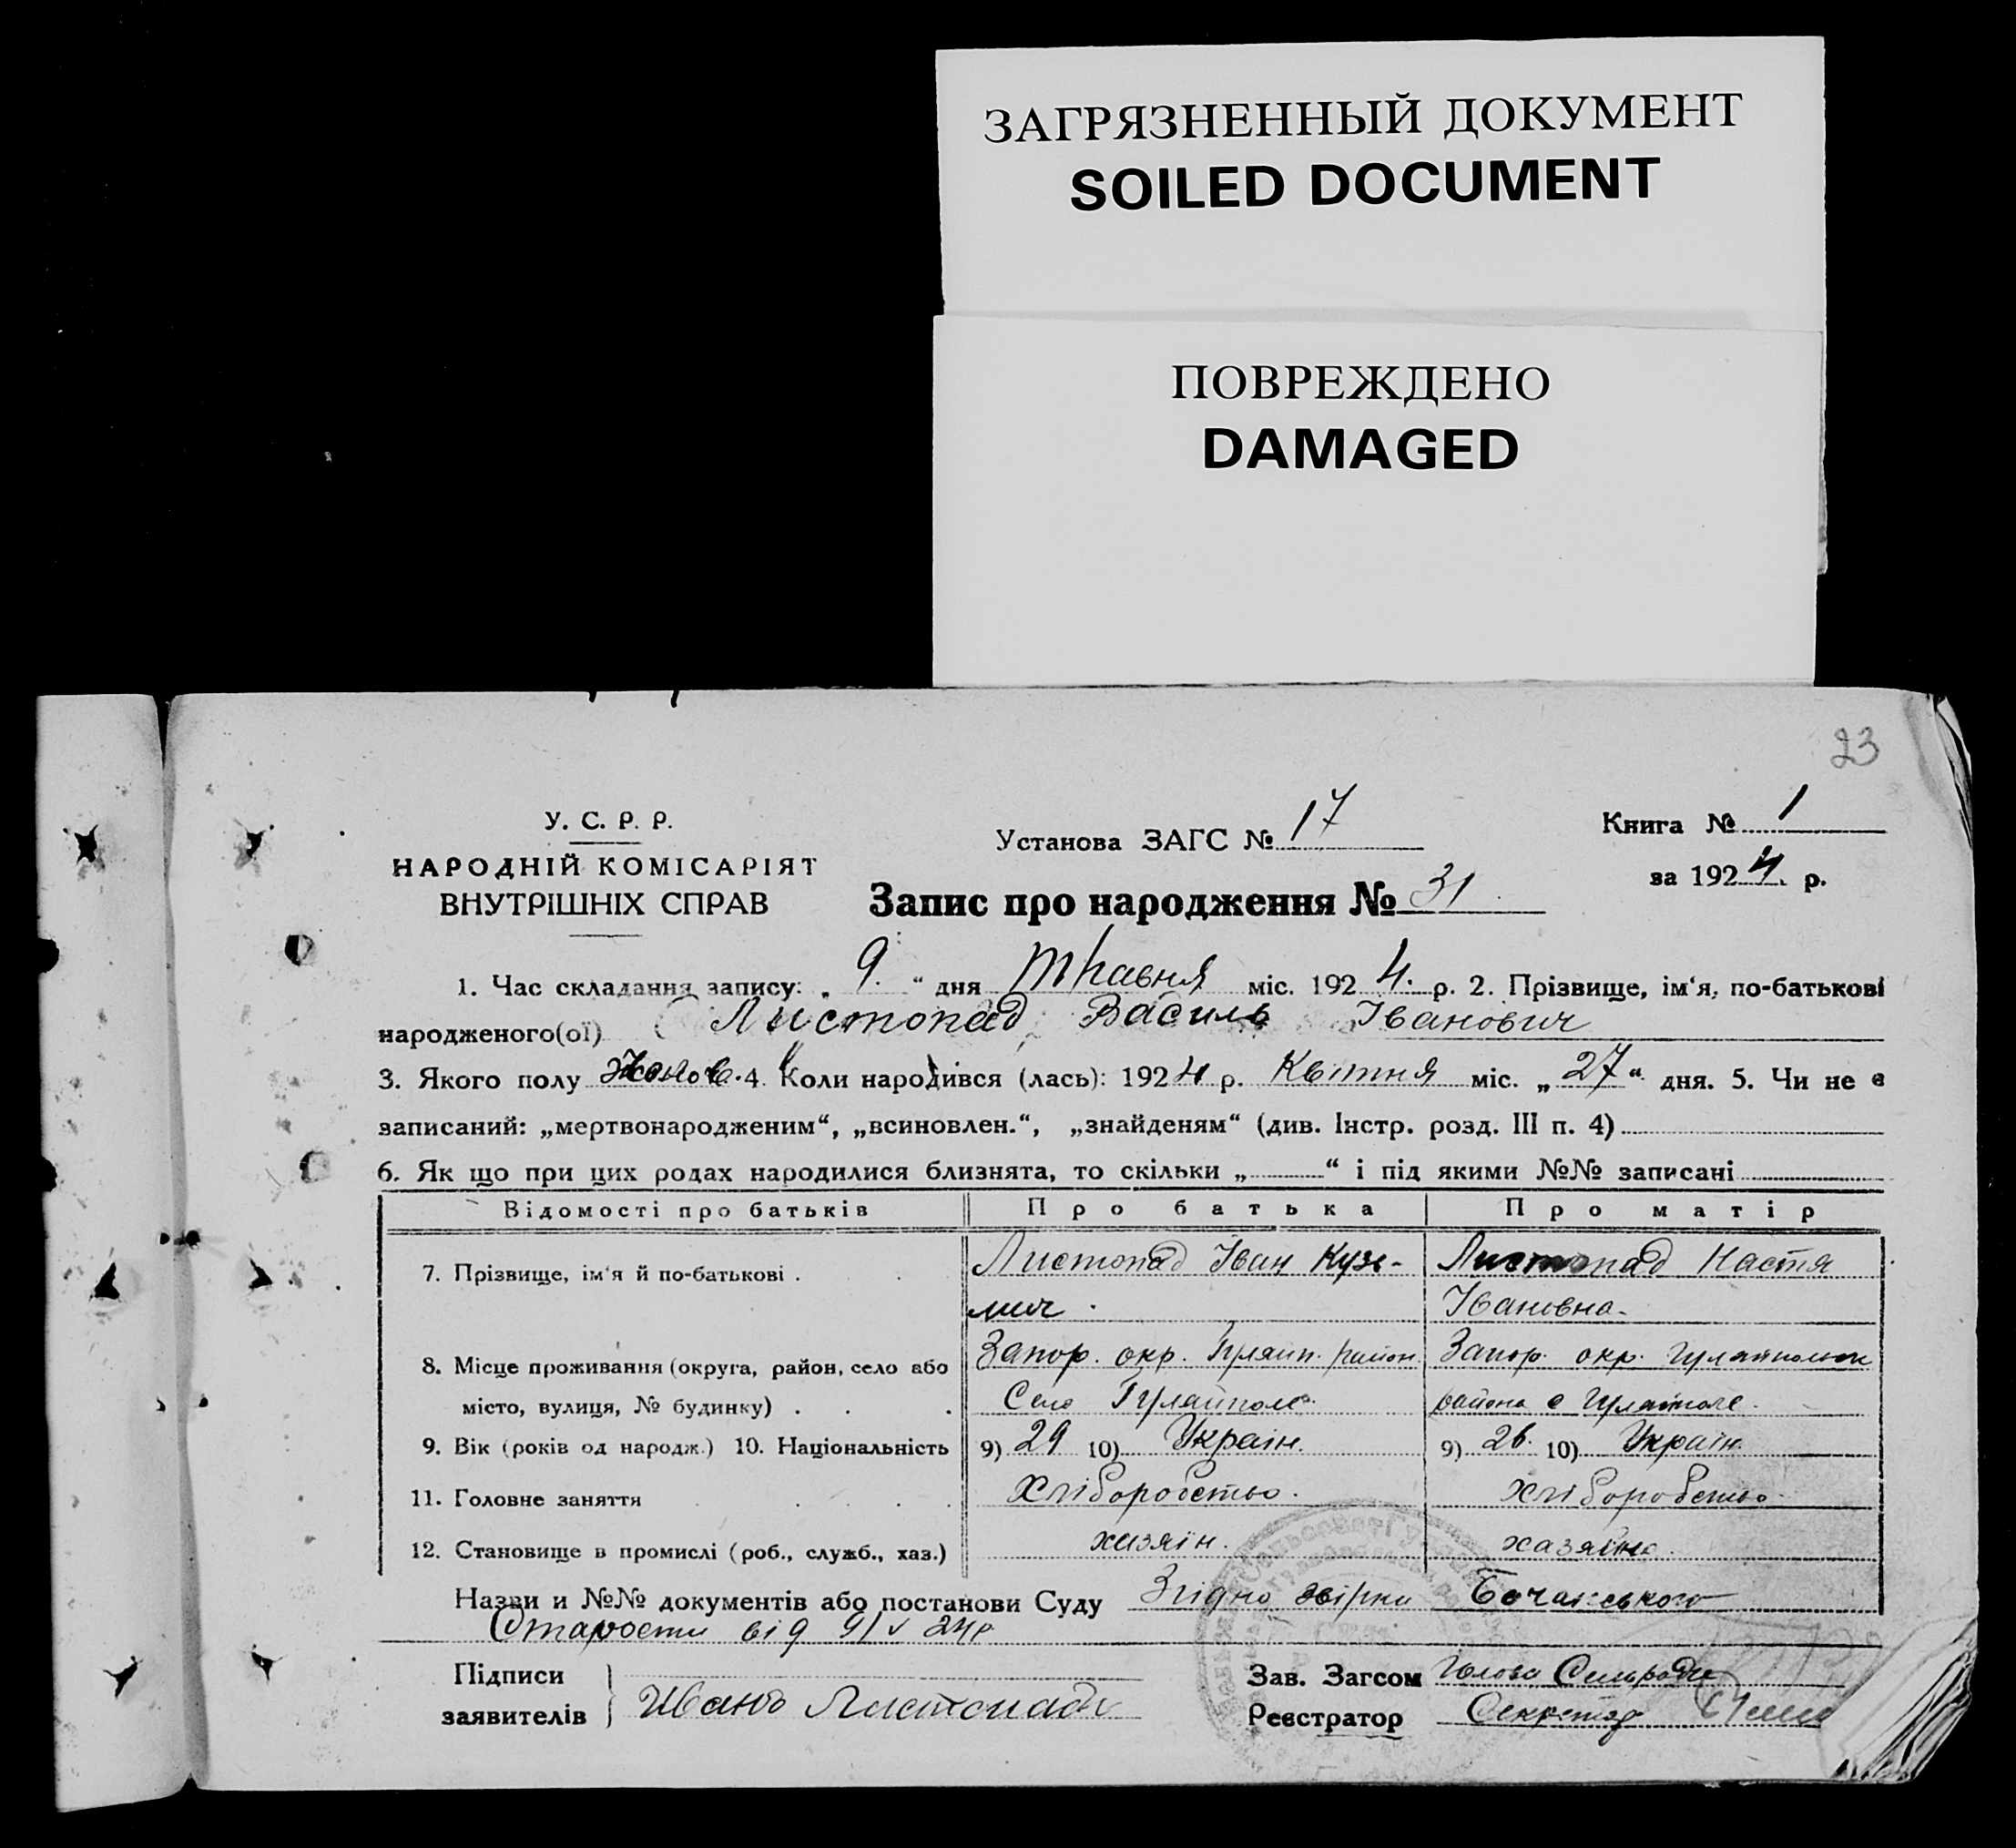 ЗАГРЯЗНЕННЫЙ ДОКУМЕНТ
SOILED DOCUMENT
ПОВРЕЖДЕНО
DAMAGED
23
У. С. Р. Р.
НАРОДНІЙ КОМІСАРІЯТ
ВНУТРІШНІХ СПРАВ
Установа ЗАГС № 17
Запис про народження № 31
Книга № 1
за 1924 р.
1. Час складання запису: „ 9 “ дня Травня міс. 1924. р. 2. Прізвище, ім‘я, по-батькові
народженого(ої) Листопад Василь Іванович
3. Якого полу 4. Коли народився (лась): 1924 р. Квітня міс. „ 27 “ дня. 5. Чи не є
записаний: „мертвонародженим“, „всиновлен.“, „знайденям“ (див. Інстр. розд. III п. 4)
6. Як що при цих родах народилися близнята, то скільки „ “ і під якими №№ записані
Відомості про батьків Про батька Про матір
7. Прізвище, ім‘я й по-батькові . Листопад Іван Кузь- Листопад Настя
мич. Івановна.
8. Місце проживання (округа, район, село або Запор. окр. Гуляйп. район Запор. окр.
місто, вулиця, № будинку) . . . Село Гуляйполе. района с Гуляйполе.
9. Вік (років од народж.) 10. Національність 9) 29 10) Украін. 9) 26. 10) Украін.
11. Головне заняття . . . . Хліборобство. хліборобство.
12. Становище в промислі (роб., служб., хаз.) хазяін. хазяйка.
Назви и №№ документів або постанови Суду Згідно звірки
Старости від 9/V 24р
Підписи
заявителів } Иванъ Листопадъ
Зав. Загсом Голова Сільради
Реєстратор Секретар